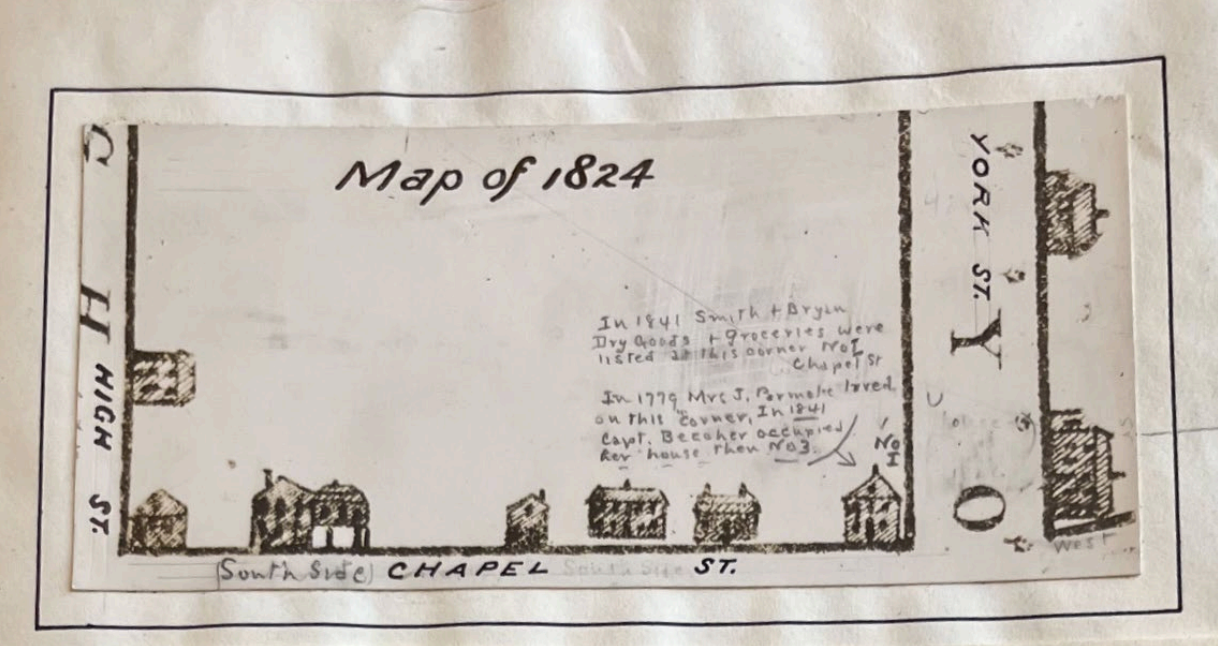 Map of 1824
C H
HIGH ST.
In 1841 Smith + Bryan
Dry Goods + groceries were
listed at this corner No I
Chapel St
In 1779 Mrs J. Parmele lived
on this corner, In 1841
Capt. Beecher occupied
her house then No 3.
No
I
YORK ST.
Y O
West
(South Side) CHAPEL South Side ST.